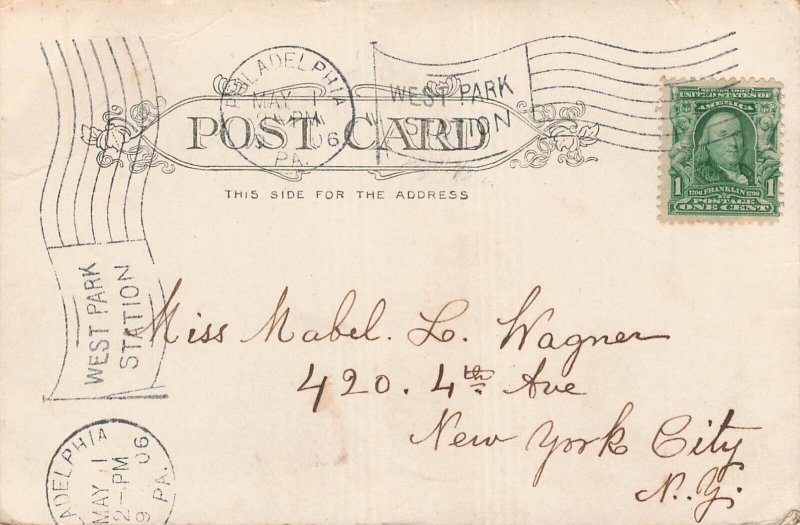 PHILADELPHIA
MAY 1
PM
06
PA.
WEST PARK
STATION
POST CARD
THIS SIDE FOR THE ADDRESS
SERIES 1902
UNITED STATES OF
AMERICA
1706 FRANKLIN 1790
1 1
POSTAGE
ONE CENT
WEST PARK
STATION
ADELPHIA
MAY 1
2-PM
9 06
PA.
Miss Mabel. L. Wagner
420. 4th Ave
New York City
N.Y.